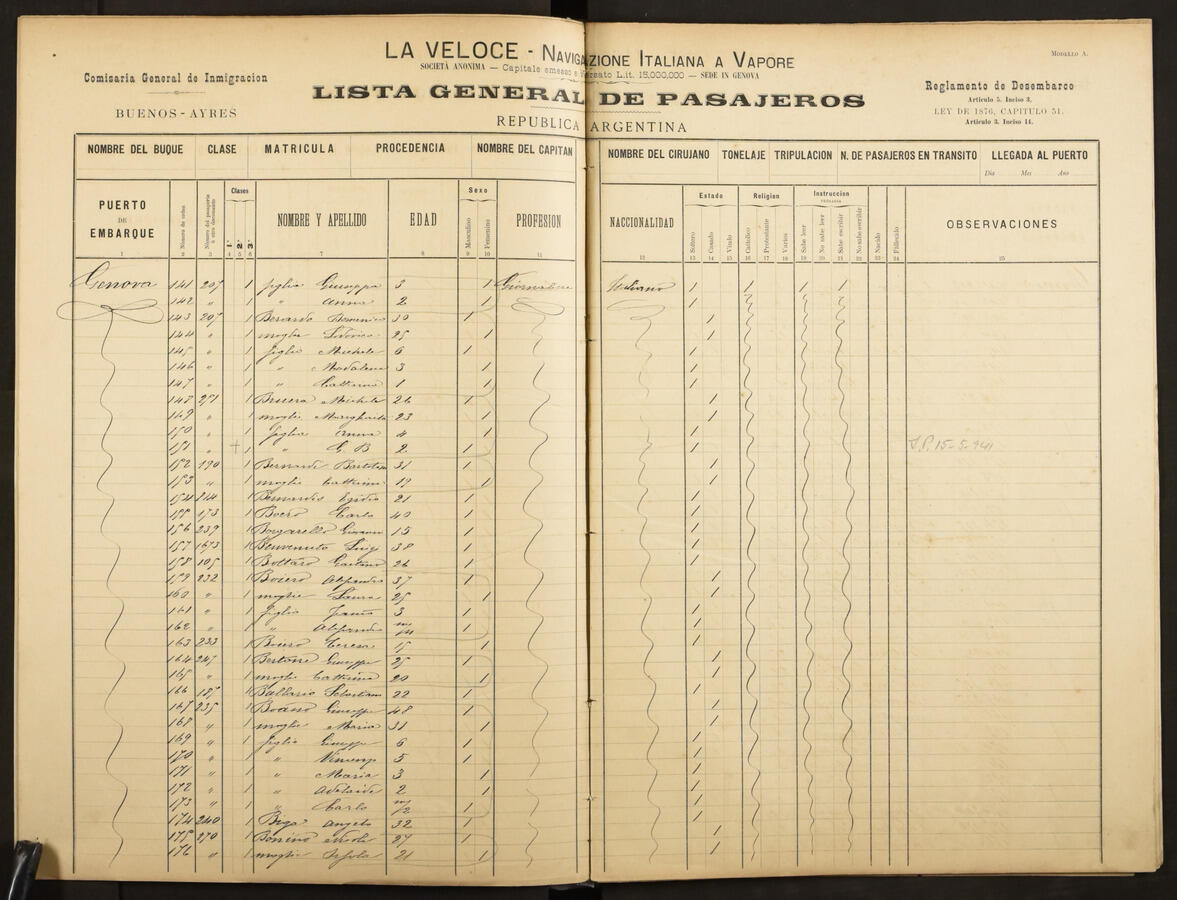 LA VELOCE - NAVIGAZIONE ITALIANA A VAPORE
SOCIETÀ ANONIMA — Capitale emesso e versato L.it. 15,000,000 — SEDE IN GENOVA
MODELLO A.
Comisaria General de Inmigracion
BUENOS-AYRES
LISTA GENERAL DE PASAJEROS
REPUBLICA ARGENTINA
Reglamento de Desembarco
Articulo 5. Inciso 3,
LEY DE 1876, CAPITULO 51.
Articulo 3. Inciso 14.
NOMBRE DEL BUQUE CLASE MATRICULA PROCEDENCIA NOMBRE DEL CAPITAN NOMBRE DEL CIRUJANO TONELAJE TRIPULACION N. DE PASAJEROS EN TRANSITO LLEGADA AL PUERTO
Dia Mes Ano
PUERTO DE EMBARQUE Número de orden Clases 1ª 2ª 3ª NOMBRE Y APELLIDO EDAD Sexo Masculino Femenino PROFESION NACCIONALIDAD Estado Soltero Casado Viudo Religion Cattolico Protestante Varios Instruccion PRIMARIA Sabe leer No sabe leer Sabe escribir No sabe escribir Nacido Fallecido OBSERVACIONES
1 2 3 4 5 6 7 8 9 10 11 12 13 14 15 16 17 18 19 20 21 22 23 24 25
Genova 141 207 1 figlia Giuseppa 3 1 Giornaliere Italiano 1 1 1 1
142 " 1 " Anna 2 1 1
143 207 1 Berardo Domenico 30 1 1
144 " 1 moglie 25 1 1
145 " 1 figlio Michele 6 1 1
146 " 1 " Madalena 3 1 1
147 " 1 " Catterina 1 1 1
148 271 1 Michele 26 1 1
149 " 1 moglie Margherita 23 1 1
150 " 1 figlia Anna 4 1 1
151 " + 1 " G B 2 1 1 J.P. 15-5-941
152 190 1 Bernardi Bartolom 31 1 1
153 " 1 moglie Catterina 19 1 1
154 214 1 Bernardis Egidio 21 1 1
155 173 1 Boero Carlo 40 1 1
156 239 1 Borgarello Giovanni 15 1 1
157 1673 1 Benvenuto Luigi 38 1 1
158 105 1 Bottaro Gaetano 26 1 1
159 232 1 Boiero Alessandro 37 1 1
160 " 1 moglie Laura 25 1 1
161 " 1 figlio 3 1 1
162 " 1 " Alessandro 1 1
163 233 1 Boiero Teresa 15 1 1
164 247 1 Bertone Giuseppe 25 1 1
165 " 1 moglie Catterina 20 1 1
166 187 1 Ballario Sebastiano 22 1 1
167 235 1 Giuseppe 48 1 1
168 " 1 moglie Maria 31 1 1
169 " 1 figlio Giuseppe 6 1 1
170 " 1 " 5 1 1
171 " 1 " Maria 3 1 1
172 " 1 " Adelaide 2 1 1
173 " 1 " Carlo 1 1
174 240 1 Biga Angelo 32 1 1
175 270 1 Bonino 27 1 1
176 " 1 moglie 21 1 1